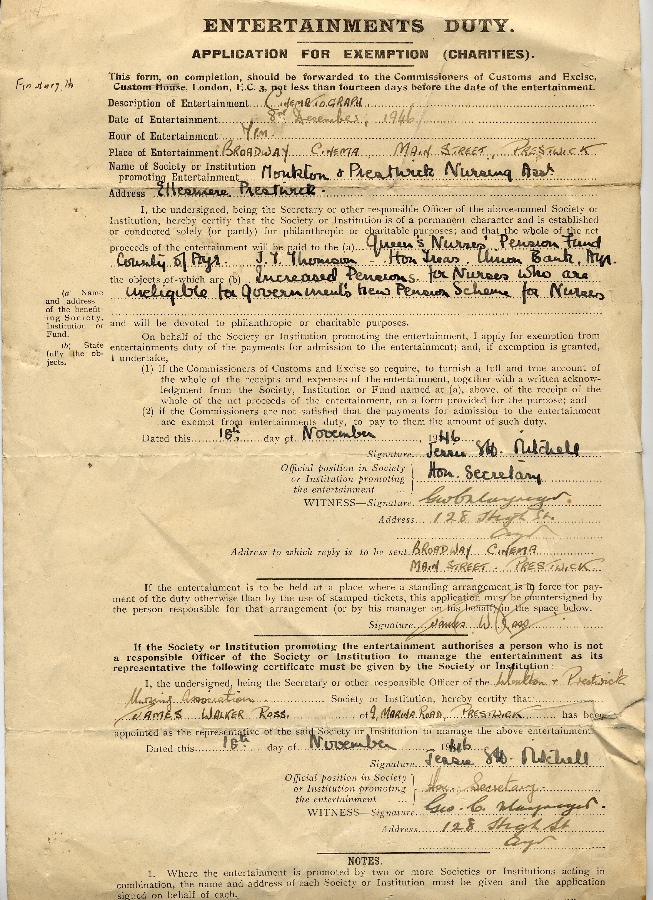 ENTERTAINMENTS DUTY.
APPLICATION FOR EXEMPTION (CHARITIES).
This form, on completion, should be forwarded to the Commissioners of Customs and Excise,
Custom House, London, E.C. 3, not less than fourteen days before the date of the entertainment.
Description of Entertainment CINEMATOGRAPH
Date of Entertainment 8th December, 1946
Hour of Entertainment 7pm.
Place of Entertainment BROADWAY CINEMA MAIN STREET, PRESTWICK
Name of Society or Institution promoting Entertainment Monkton & Prestwick Nursing Assn
Address Ellesmere Prestwick.
I, the undersigned, being the Secretary or other responsible Officer of the above-named Society or
Institution, hereby certify that the Society or Institution is of a permanent character and is established
or conducted solely (or partly) for philanthropic or charitable purposes; and that the whole of the net
proceeds of the entertainment will be paid to the (a) Queen's Nurses' Pension Fund
County of Ayr. J. T. Thomson Hon Treas. Union Bank, Ayr.
the objects of which are (b) Increased Pensions for Nurses who are
ineligible for Government's New Pension Scheme for Nurses
(a Name
and address
of the benefit-
ing Society,
Institution or
Fund.
(b) State
fully the ob-
jects.
and will be devoted to philanthropic or charitable purposes.
On behalf of the Society or Institution promoting the entertainment, I apply for exemption from
entertainments duty of the payments for admission to the entertainment; and, if exemption is granted,
I undertake,
(1) if the Commissioners of Customs and Excise so require, to furnish a full and true account of
the whole of the receipts and expenses of the entertainment, together with a written acknow-
ledgment from the Society, Institution or Fund named at (a), above, of the receipt of the
whole of the net proceeds of the entertainment, on a form provided for the purpose; and
(2) if the Commissioners are not satisfied that the payments for admission to the entertainment
are exempt from entertainments duty, to pay to them the amount of such duty.
Dated this 18th day of November, 1946
Signature Mitchell
Official position in Society or Institution promoting the entertainment Hon. Secretary
WITNESS—Signature
Address 128 High St.
Ayr
Address to which reply is to be sent BROADWAY CINEMA
MAIN STREET PRESTWICK
If the entertainment is to be held at a place where a standing arrangement is in force for pay-
ment of the duty otherwise than by the use of stamped tickets, this application must be countersigned by
the person responsible for that arrangement (or by his manager on his behalf) in the space below.
Signature James W. Ross
If the Society or Institution promoting the entertainment authorises a person who is not
a responsible Officer of the Society or Institution to manage the entertainment as its
representative the following certificate must be given by the Society or Institution:
I, the undersigned, being the Secretary or other responsible Officer of the Monkton & Prestwick
Nursing Association Society or Institution, hereby certify that
JAMES WALKER ROSS. of 9, MARINA ROAD, PRESTWICK has been
appointed as the representative of the said Society or Institution to manage the above entertainment.
Dated this 18th day of November 1946
Signature Mitchell
Official position in Society or Institution promoting the entertainment Hon. Secretary
WITNESS—Signature Geo. C.
Address 128 High St
Ayr
NOTES.
1. Where the entertainment is promoted by two or more Societies or Institutions acting in
combination, the name and address of each Society or Institution must be given and the application
signed on behalf of each.